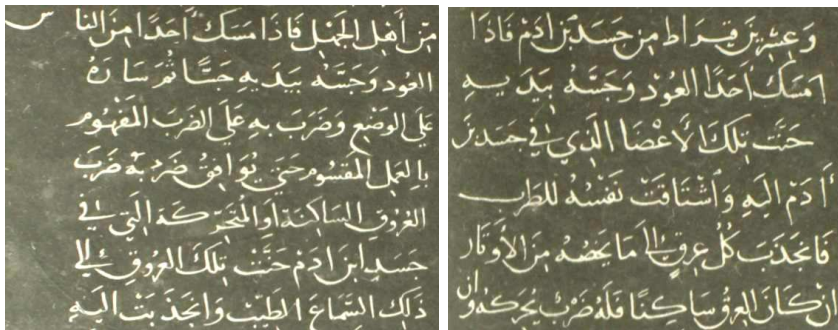 وعشرين قيراط من جسد بن ادم فاذا
امسك أحدا العود وجسه بيديه
حنت تلك الاعضا الذي في جسد بن
أدم اليه واشتاقت نفسه للطرب
فانجذب كل عرق الى ما يخصه من الأوتار
ان كان العرق ساكنا فله ضرب يحركه وان
من أهل الجهل فاذا مسك أحدا من الناس
العود وجسه بيديه جسا ثم ساره
على الوضع وضرب به على الضرب المفهوم
بالعمل المقسوم حتى يوافق ضربه ضرب
العروق الساكنة او المتحركة التي في
جسد ابن ادم حنت تلك العروق الى
ذلك السماع الطيب وانجذبت اليه